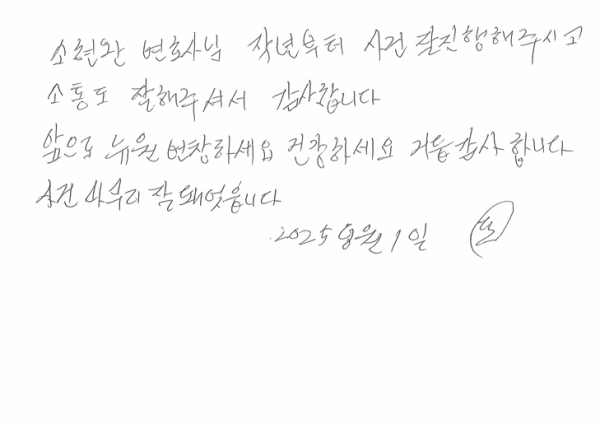 소현완 변호사님 작년부터 사건 잘진행해주시고
소통도 잘해주셔서 감사합니다
앞으로 뉴원 번창하세요 건강하세요 거듭감사합니다
사건 마무리 잘돼엇읍니다
2025 9월 1일